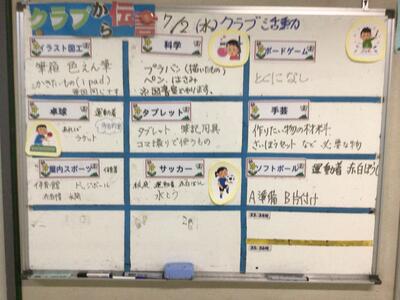 クラブから伝言
7/2(水)クラブ活動
イラスト図工
筆箱 色えん筆
かきたいもの(ipad)
科学
プラバン(描いたもの)
ペン、はさみ
ボードゲーム
とくになし
卓球
あれば
ラケット
運動着
タブレット
タブレット 筆記用具
コマ撮りで使うもの
手芸
作りたい物の材料
さいほうセットなど必要な物
屋内スポーツ
体育館
サッカー
校庭 運動着 赤白ぼうし
水とう
ソフトボール
運動着 赤白ぼうし
A準備 B片付け